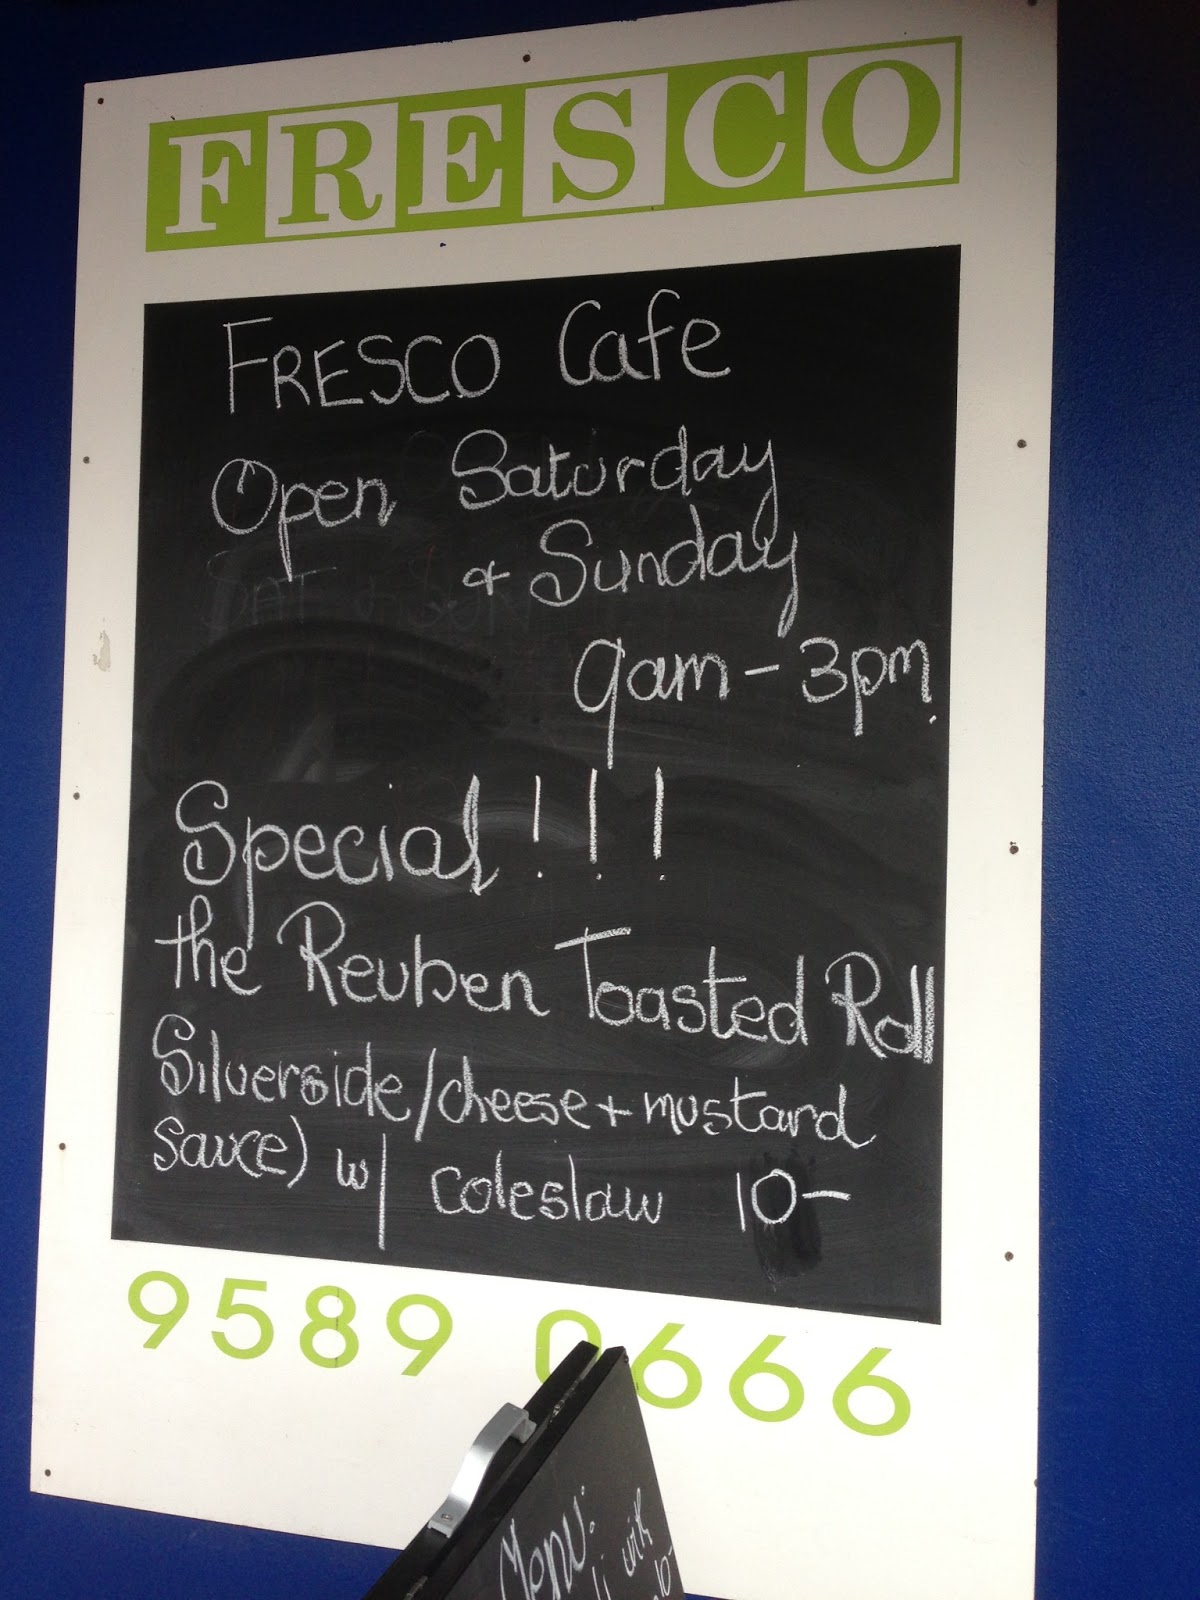 FRESCO
FRESCO Cafe
Open Saturday
+ Sunday
9am - 3pm.
Special!!!
the Reuben Toasted Roll
Silverside/cheese + mustard
sauce) w/ coleslaw 10-
9589 0666
Menu:
with